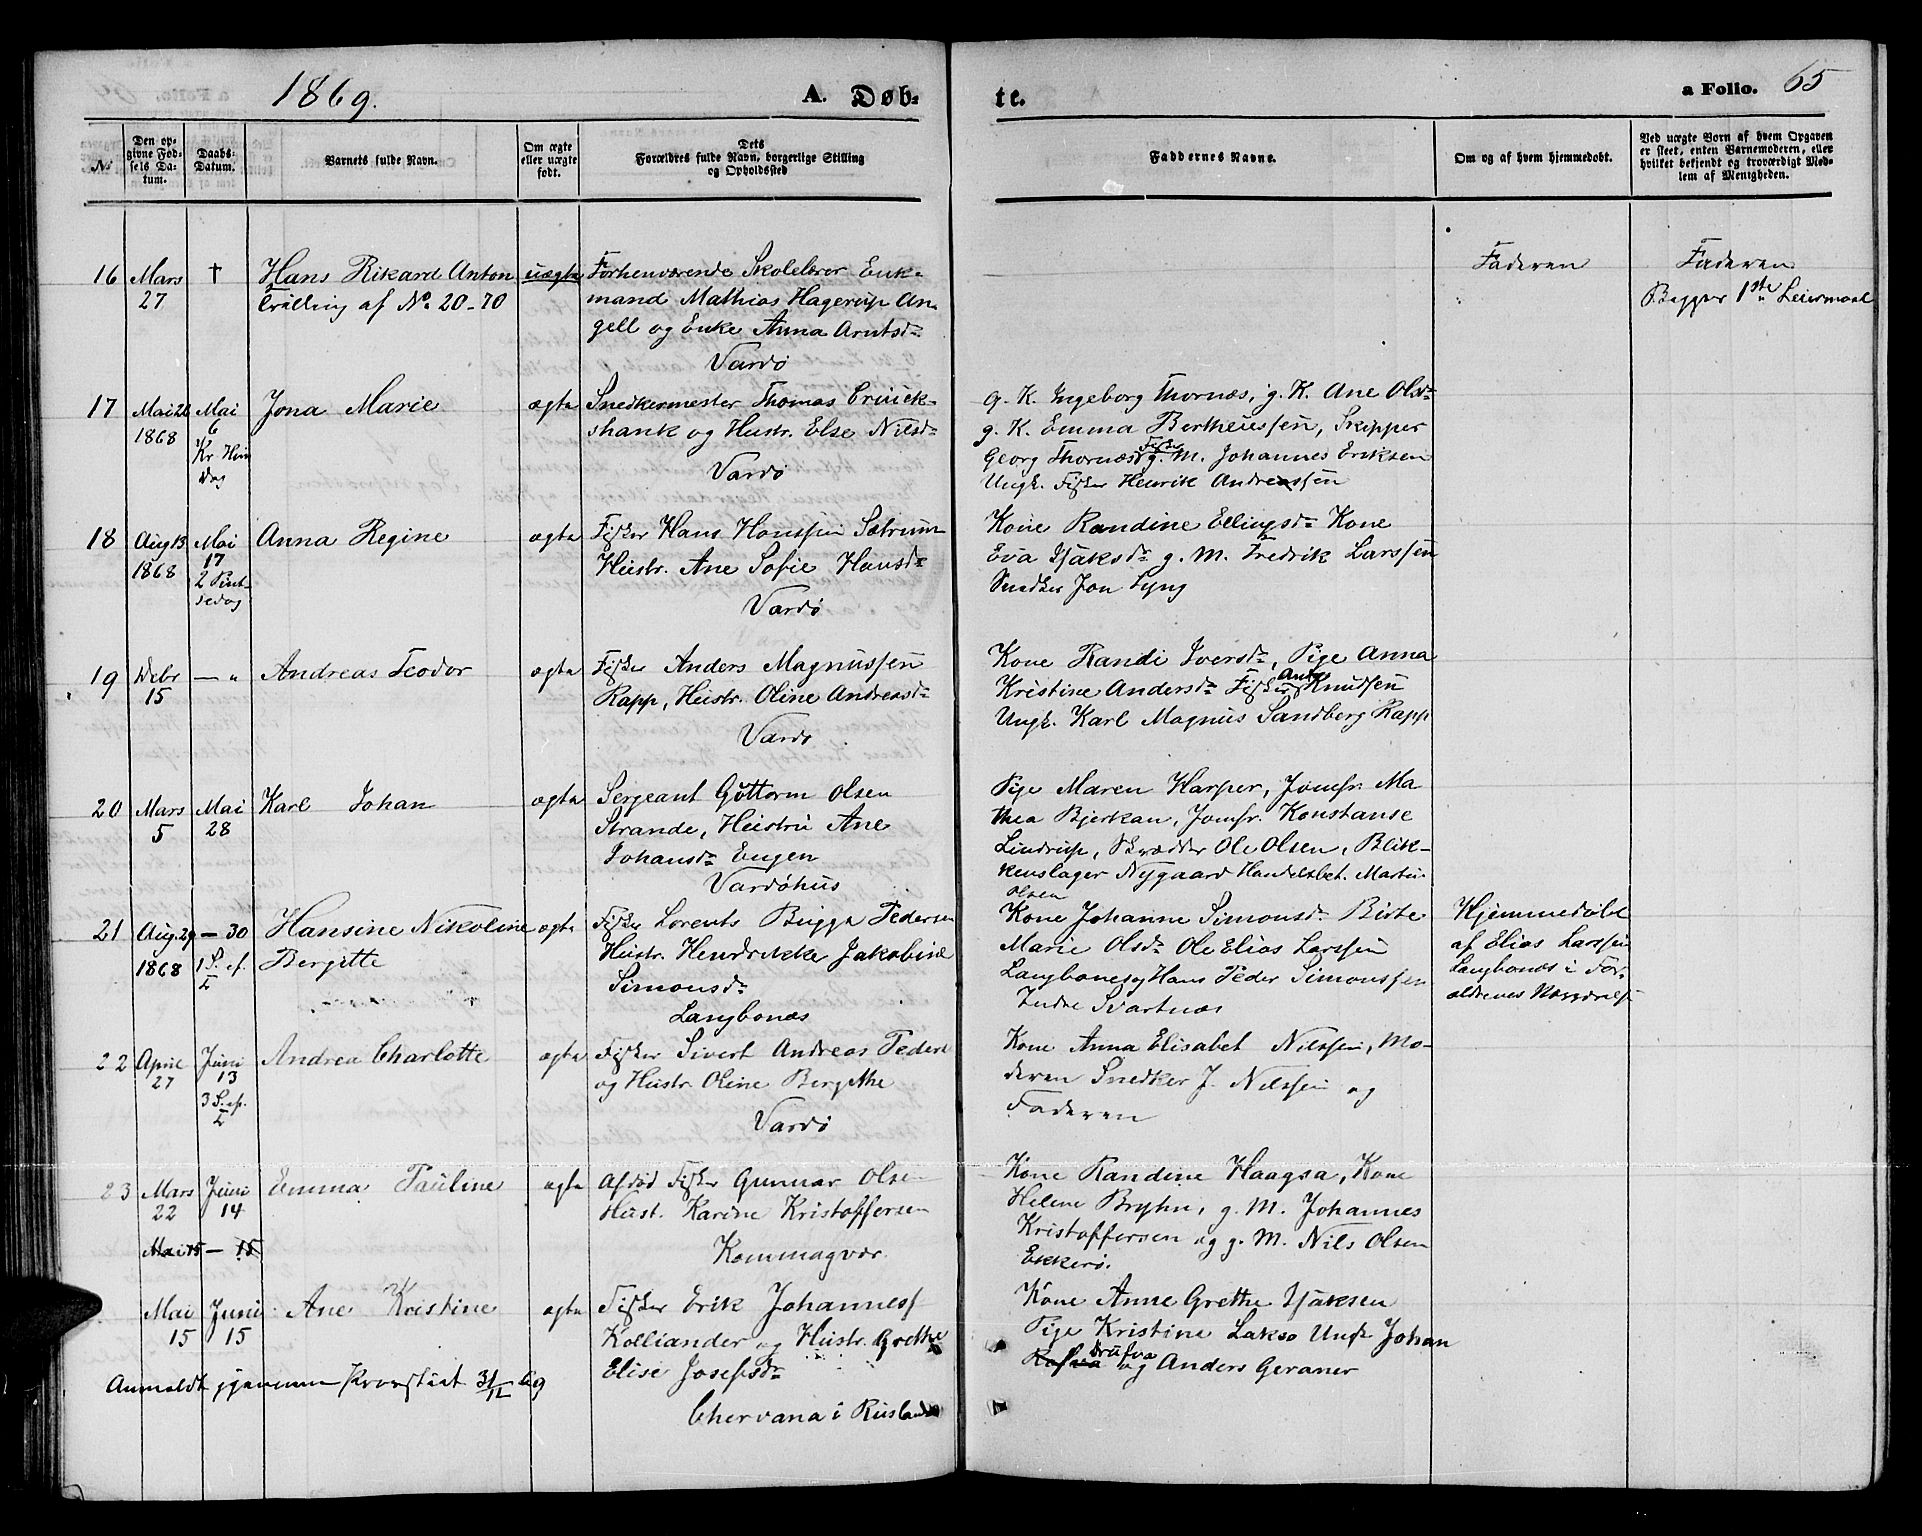 1869. A. Døb- te. a Folio. 65
No
Den opgivne Fødsels Datum.
Daabs-Datum.
Barnets fulde Navn.
Om ægte eller uægte født.
Dets Forældres fulde Navn, borgerlige Stilling og Opholdssted
Faddernes Navne.
Om og af hvem hjemmedøbt.
Ved uægte Børn af hvem Opgaven er skeet, enten Barnemoderen, eller hvilket bekjendt og troværdigt Medlem af Menigheden.
16 Mars † Hans Rikard Anton uægte Forhenværende Skolelærer Enk- Faderen Faderen
27 Tvilling af No 20-70 mand Mathias Hagerup An- Begges 1ste Leiermaal
gell og Enke Anna Arntsdr
Vardø
17 Mai 26 Mai Jona Marie ægte Snedkermester Thomas Cruick- g. K. Ingeborg Thornæs, g. K. Ane Olsdr
1868 6 shank og Hustr. Else Nilsdr g. K. Emma Bertheussen, Skipper
Kr Him Vardø Georg Thornæs, Fisker g. M. Johannes Eriksen
dag Ungk. Fisker Henrik Andreassen
18 Aug 13 Mai Anna Regine ægte Fisker Hans Hanssen Sætrum Kone Randine Ellingsdr Kone
1868 17 Hustr. Ane Sofie Hansdr Eva Isaksdr g. M. Fredrik Larssen
2 Pint Vardø Snedker Jon Lyng
sedag
19 Debr — „ Andreas Teodor ægte Fisker Anders Magnussen Kone Randi Iversdr, Pige Anna
15 Rapp, Hustr. Oline Andreasdr Kristine Andersdr Fisker Knudsen
Vardø Ungk. Karl Magnus Sandberg Rapp
20 Mars Mai Karl Johan ægte Sergeant Guttorm Olsen Pige Maren Harper, Jomfr. Ma
5 28 Strande, Hustru Ane thea Bjerkan, Jomfr. Konstanse
Johansdr Eugen Lindrup, Skrædder Ole Olsen, Blik-
Vardøhus kenslager Nygaard Handelsbet. Martin
Olsen
21 Aug. 29 — 30 Hansine Nikoline ægte Fisker Lorents Bugga Pedersen Kone Johanne Simonsdr Birte Hjemmedøbt
1868 1 S. ef. Bergitte Hustr. Hendrikke Jakobine Marie Olsdr Ole Elias Larssen af Elias Larssen
Simonsdr Langbones og Hans Peder Simonssen Langbonæs i For-
Langbonæs Indre Svartnæs ældrenes Nærværelse
22 April Juni Andrea Charlotte ægte Fisker Sivert Andreas Peders Kone Anna Elisabet Nilssen, Mo-
27 13 og Hustr Oline Bergithe deren Snedker J. Nilssen og
3 S. ef. Vardø Faderen
23 Mars Juni Emma Pauline ægte Afdød Fisker Gunnar Olsen Kone Randine Haagsa, Kone
22 14 Hust. Karine Kristoffersen Helene Bryhn, g. M. Johannes
Mai 15 — 15 Kommagvær Kristoffersen og g. M. Nils Olsen
Ekkerø.
Mai Juni Ane Kristine ægte Fisker Erik Johanness Kone Anne Grethe Isaksen
15 15 Kolliander og Hustr. Grethe Pige Kristine Lakso Ungk Johan
Elise Josefsdr Drufva og Anders Geraner
Anmeldt gjennem Provstiet 31/12 69
Chervana i Rusland